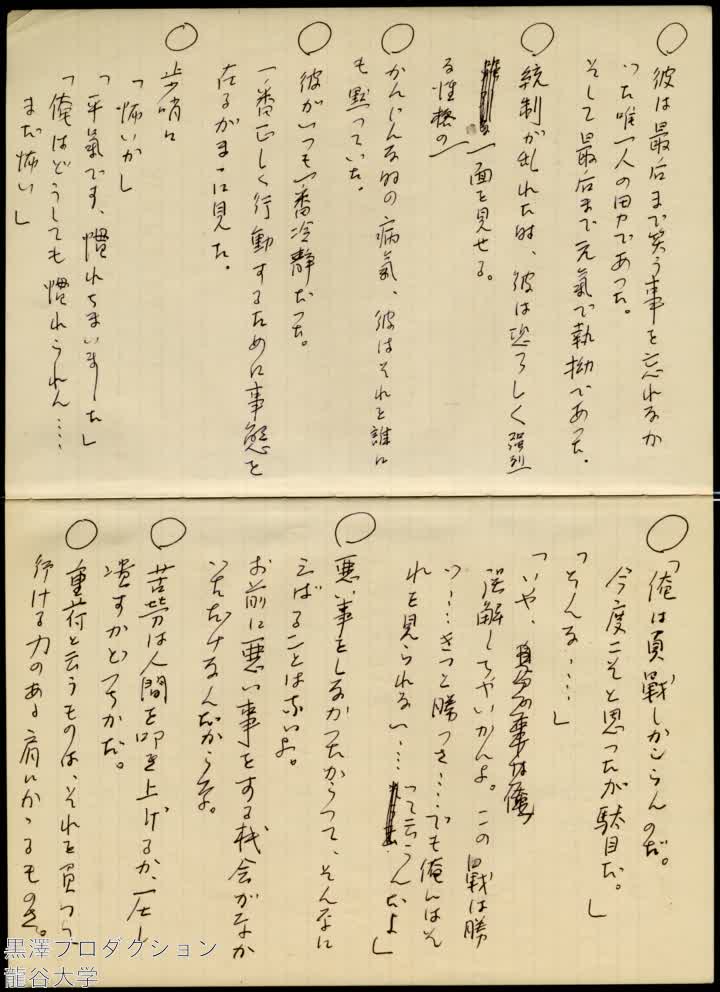 ○ 彼は最后まで笑う事を忘れなか
った唯一人の男であった。
そして最后まで元氣で執拗であった。
○ 統制が乱れた時、彼は恐ろしく强烈
な性格の一面を見せる。
○ かんじんな時の病氣、彼はそれを誰に
も黙っていた。
○ 彼がいつも一番冷静だった。
一番正しく行動するために事態を
在るがまゝに見た。
○ 歩哨に
「怖いか」
「平氣です、慣れちまいました」
「俺はどうしても慣れられん‥‥
まだ怖い」
○ 「俺は負戰しかしらんのだ。
今度こそと思ったが駄目だ。」
「そんな‥‥」
「いや、
誤解しちゃいかんよ。この戰は勝
つ‥‥きっと勝つさ‥‥でも俺にはそ
れを見られない‥‥って云うんだよ」
○ 悪い事をしなかったからって、そんなに
えばることはないよ。
お前に悪い事をする机会がなか
っただけなんだからな。
○ 苦労は人間を叩き上げるか、圧し
潰すかどっちかだ。
○ 重荷と云うものは、それを負って
行ける力のある肩にかゝるものさ。
黒澤プロダクション
龍谷大学